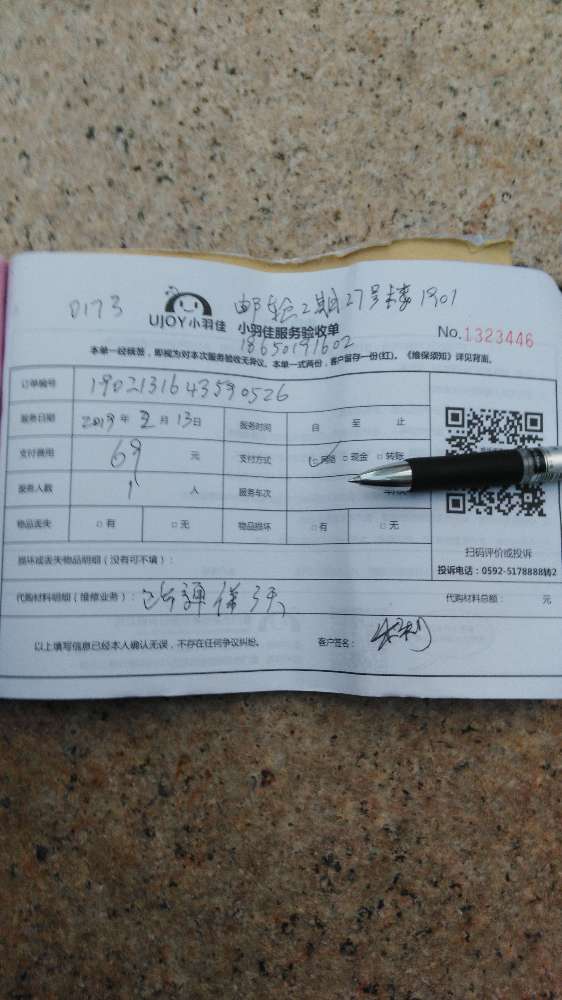 0173
邮轮2期27号楼1901
UJOY小羽佳 小羽佳服务验收单
No.1323446
18650191602
本单一经核签，即视为对本次服务验收无异议。本单一式两份，客户留存一份(红)。《维保须知》详见背面。
订单编号 1902131643590526
服务日期 2019 年 2 月 13 日 服务时间 自 至 止
支付费用 69 元 支付方式 □网络 □现金 □转账
服务人数 1 人 服务车次
物品丢失 □有 □无 物品损坏 □有 □无
扫码评价或投诉
损坏或丢失物品明细（没有可不填）：
投诉电话：0592-5178888转2
代购材料明细（维修业务）： 代购材料总额： 元
以上填写信息已经本人确认无误，不存在任何争议纠纷。 客户签名：